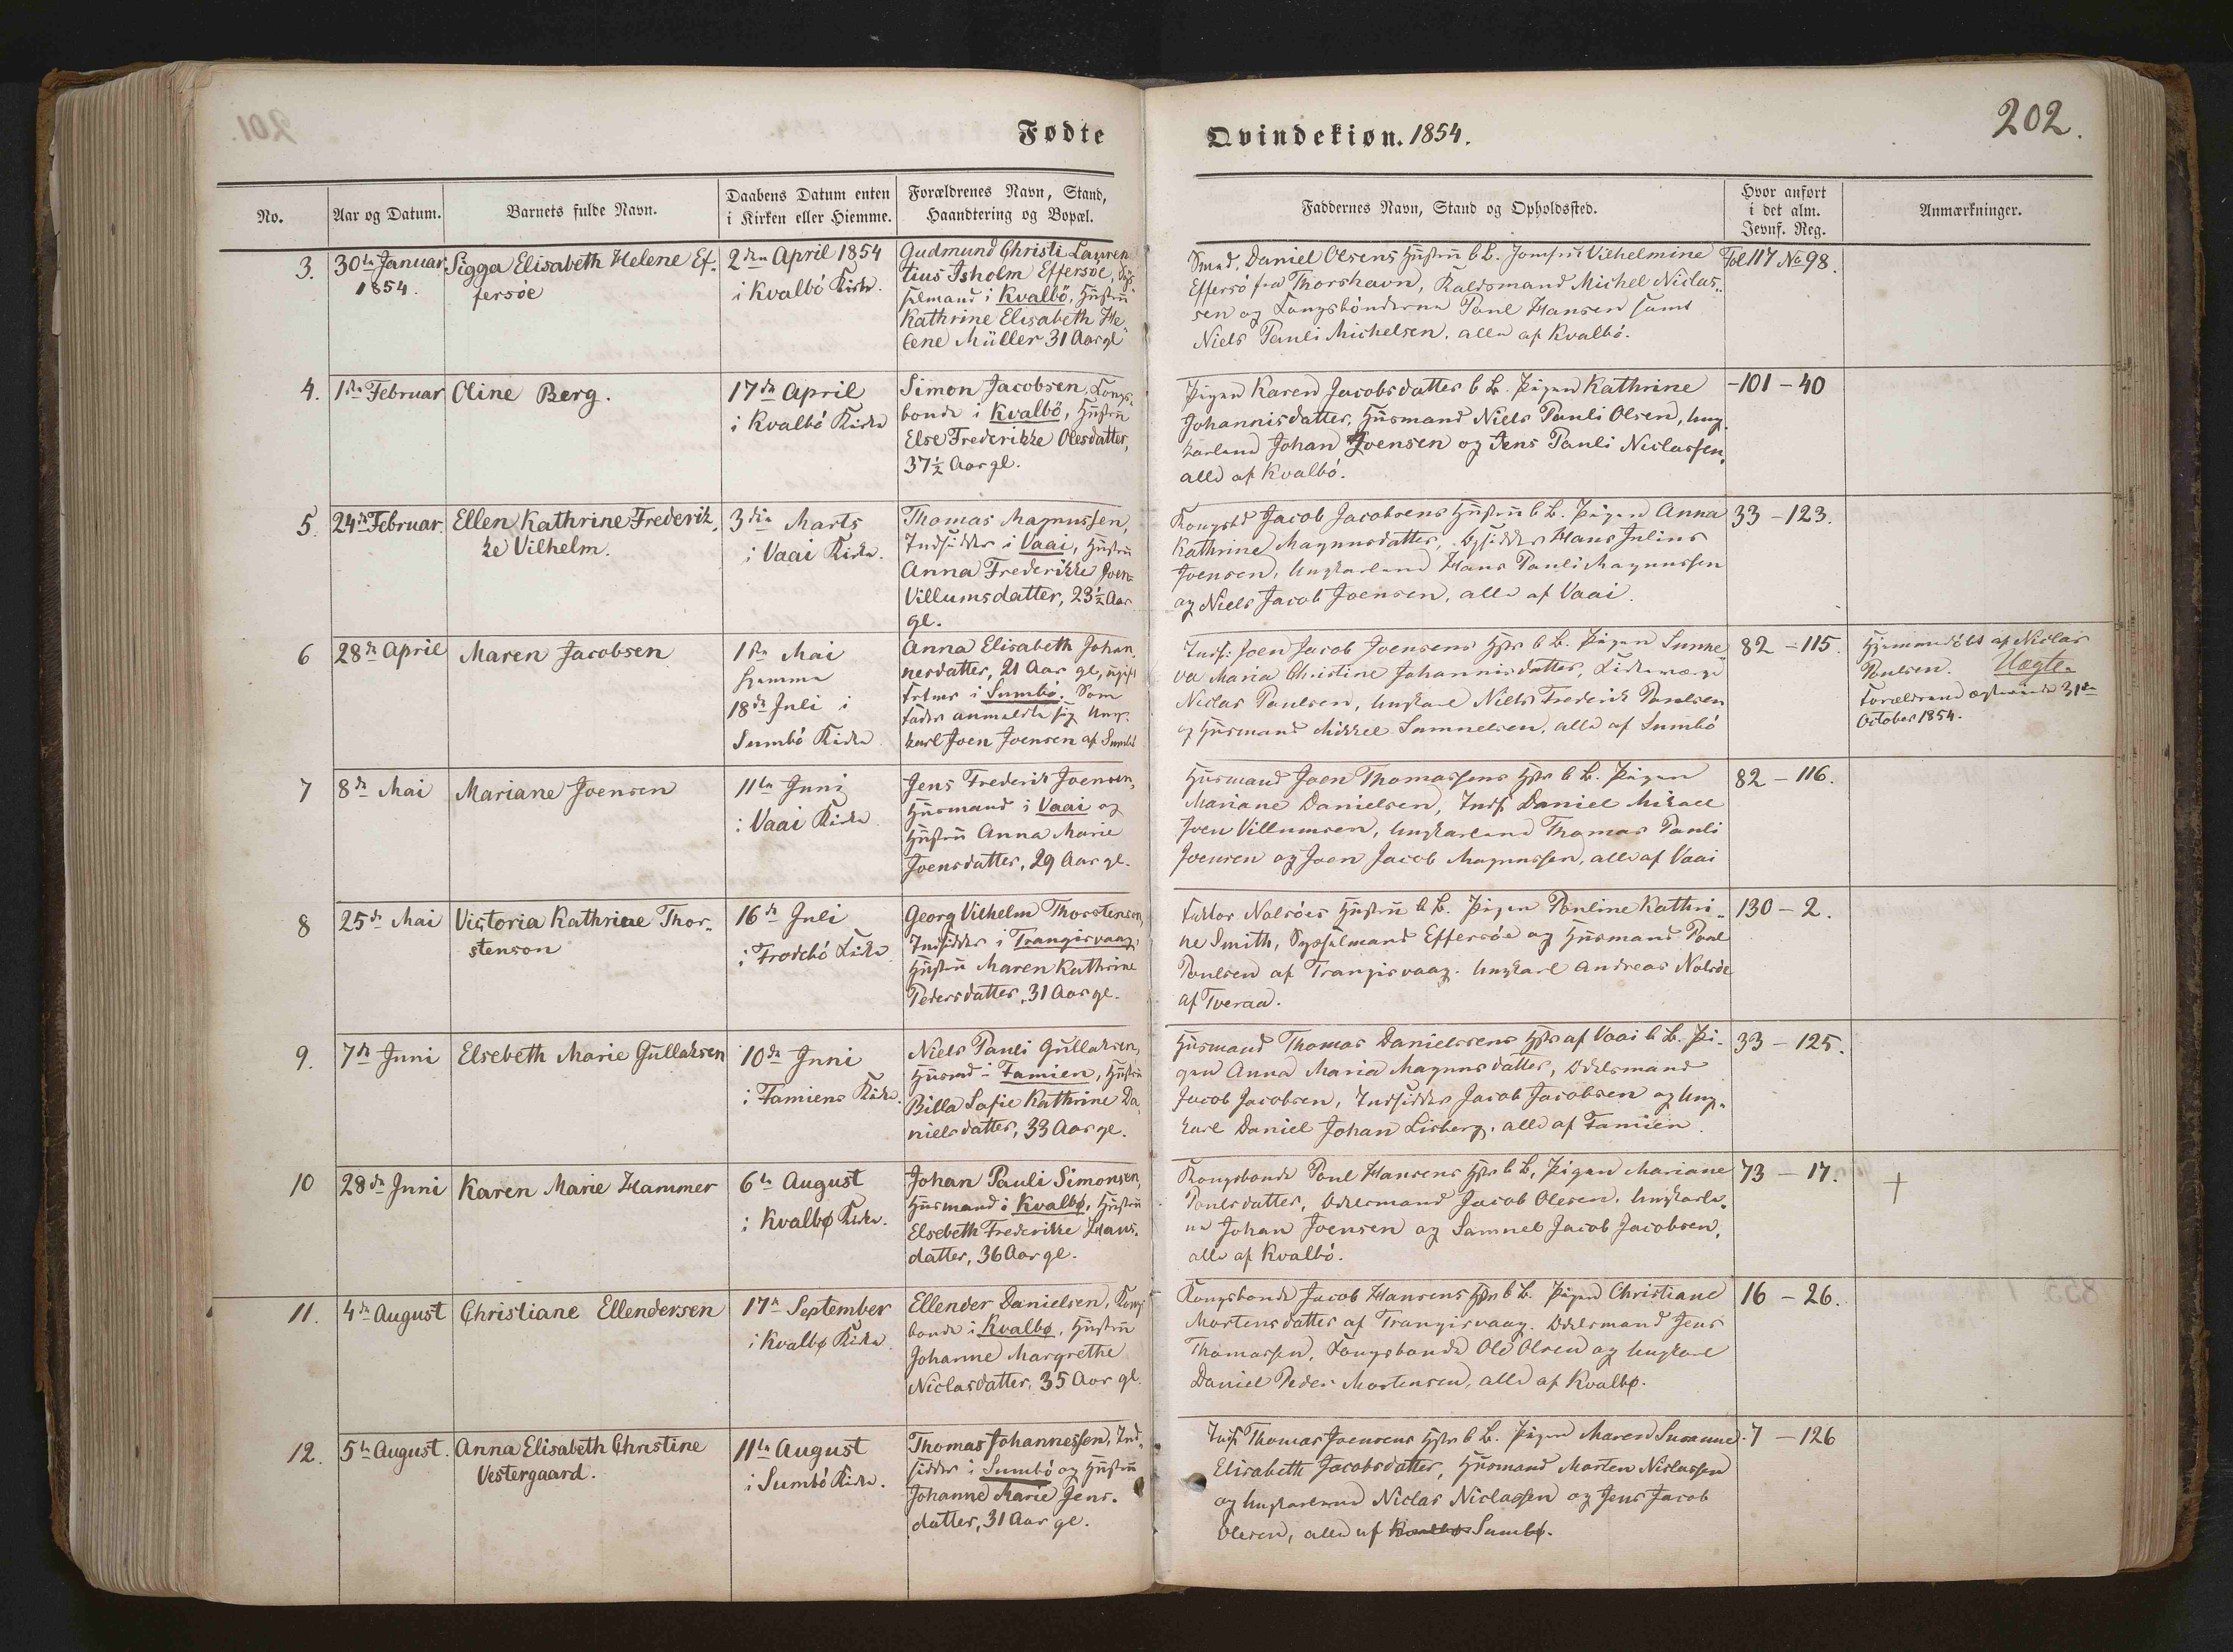 Fødte
Qvindekiøn. 1854.
202.
No.
Aar og Datum.
Barnets fulde Navn.
Daabens Datum enten
i Kirken eller Hiemme.
Forældrenes Navn, Stand,
Haandtering og Bopæl.
Faddernes Navn, Stand og Opholdssted.
Hvor anført
i det alm.
Jevnf. Reg.
Anmærkninger.
3.
30te Januar
1854.
Sigga Elisabeth Helene Ef-
fersöe
2den April 1854
i Kvalbö Kirke.
Gudmund Christi Lauren
tius Isholm Effersöe, Sys
selmand i Kvalbö, Hustru
Kathrine Elisabeth He
lene Müller 31 Aar gl
Smed, Daniel Olsens Hustru b. B. Jomfru Vilhelmine
Effersö fra Thorshavn, Raadsmand Michel Niclas-
sen og Kongsbönderne Poul Hansen samt
Niels Pauli Michelsen, alle af Kvalbö.
Fol 117 No 98.
4.
1ste Februar
Oline Berg.
17de April
i Kvalbö Kirke
Simon Jacobsen, Kongs-
bonde i Kvalbö, Hustru
Else Frederikke Olesdatter,
37½ Aar gl.
Pigen Karen Jacobsdatter b. B. Pigen Kathrine
Johannisdatter, Husmand Niels Pauli Olsen, Ung-
karlene Johan Joensen og Jens Pauli Niclassen,
alle af Kvalbö.
- 101 - 40
5.
24de Februar.
Ellen Kathrine Frederik,
ke Vilhelm.
3die Marts
i Vaai Kirke.
Thomas Magnussen,
Indsidder i Vaai, Hustru
Anna Frederikke Joen-
Villumsdatter, 23½ Aar
gl.
Kongsbd Jacob Jacobsens Hustru b. B. Pigen Anna
Kathrine Magnusdatter, Hans Julius
Joensen, Ungkarlene Hans Pauli Magnussen
og Niels Jacob Joensen, alle af Vaai.
33 - 123.
6
28de April
Maren Jacobsen
1ste Mai
hjemme
18de Juli i
Sumbö Kirke
Anna Elisabeth Johan
nesdatter, 21 Aar gl, ugift
i Sumbö. Som
Fader anmeldte sig Ung-
karl Joen Joensen af Sumbö
Inds: Joen Jacob Joensens Hstr b. B. Pigen Sunne
va Maria Christine Johannisdatter, Kirkeværge
Niclas Poulsen, Ungkarl Niels Frederik Poulsen
og Husmand Mikkel Samuelsen, alle af Sumbö
82 - 115.
Hjemmedöbt af Niclas
Poulsen. Uægte
Forældrene ægteviede 31te
October 1854.
7
8de Mai
Mariane Joensen
11te Juni
i Vaai Kirke
Jens Frederik Joensen,
Husmand i Vaai og
Hustru Anna Marie
Joensdatter, 29 Aar gl.
Husmand Joen Thomassens Hstr b. B. Pigen
Mariane Danielsen, Inds: Daniel Mikael
Joen Villumsen, Ungkarlene Thomas Pauli
Joensen og Joen Jacob Magnussen, alle af Vaai
82 - 116.
8
25de Mai
Victoria Kathrine Thor-
stenson
16de Juli
i Frodebö Kirke
Georg Vilhelm Thorstenson,
Indsidder i Trangisvaag,
Hustru Maren Kathrine
Pedersdatter, 31 Aar gl.
Faktor Nolsöes Hustru b. B. Pigen Pouline Kathri-
ne Smith, Sysselmand Effersöe og Husmand Poul
Poulsen af Trangisvaag. Ungkarl Andreas Nolsöe
af Tveraa.
130 - 2.
9.
7de Juni
Elsebeth Marie Gullaksen
10de Juni
i Famiens Kirke.
Niels Pauli Gullaksen,
Husmd i Famien, Hustru
Billa Sofie Kathrine Da,
nielsdatter, 33 Aar gl.
Husmand Thomas Danielsens Hstr af Vaai b. B. Pi-
gen Anna Maria Magnusdatter, Odelsmand
Jacob Jacobsen, Indsidder Jacob Jacobsen og Ung-
karl Daniel Johan Lisberg, alle af Famien.
33 - 125.
10
28de Juni
Karen Marie Hammer
6te August
i Kvalbø Kirke.
Johan Pauli Simonsen,
Husmand i Kvalbø, Hustru
Elsebeth Frederikke Hans-
datter, 36 Aar gl.
Kongsbonde Poul Hansens Hstr b. B, Pigen Mariane
Poulsdatter, Odelsmand Jacob Olesen, Ungkarle-
ne Johan Joensen og Samuel Jacob Jacobsen,
alle af Kvalbö.
73 - 17.
+
11.
4de August
Christiane Ellendersen
17de September
i Kvalbø Kirke
Ellender Danielsen, Kongs
bonde i Kvalbø, Hustru
Johanne Margrethe
Niclasdatter, 35 Aar gl.
Kongsbonde Jacob Hansens Hstr b. B. Pigen Christiane
Mortensdatter af Trangisvaag. Odelsmand Jens
Thomassen, Kongsbonde Ole Olsen og Ungkarl
Daniel Peder Mortensen, alle af Kvalbø.
16 - 26.
12.
5te August.
Anna Elisabeth Christine
Vestergaard.
11te August
i Sumbö Kirke.
Thomas Johannessen, Ind-
sidder i Sumbö og Hustru
Johanne Marie Jens-
datter, 31 Aar gl.
Inds: Thomas Joensens Hstr b. B. Pigen Maren Susanne
Elisabeth Jacobsdatter, Husmand Morten Niclassen
og Ungkarlene Niclas Niclassen og Jens Jacob
Olesen, alle af Kvalbø Sumbø.
7 - 126